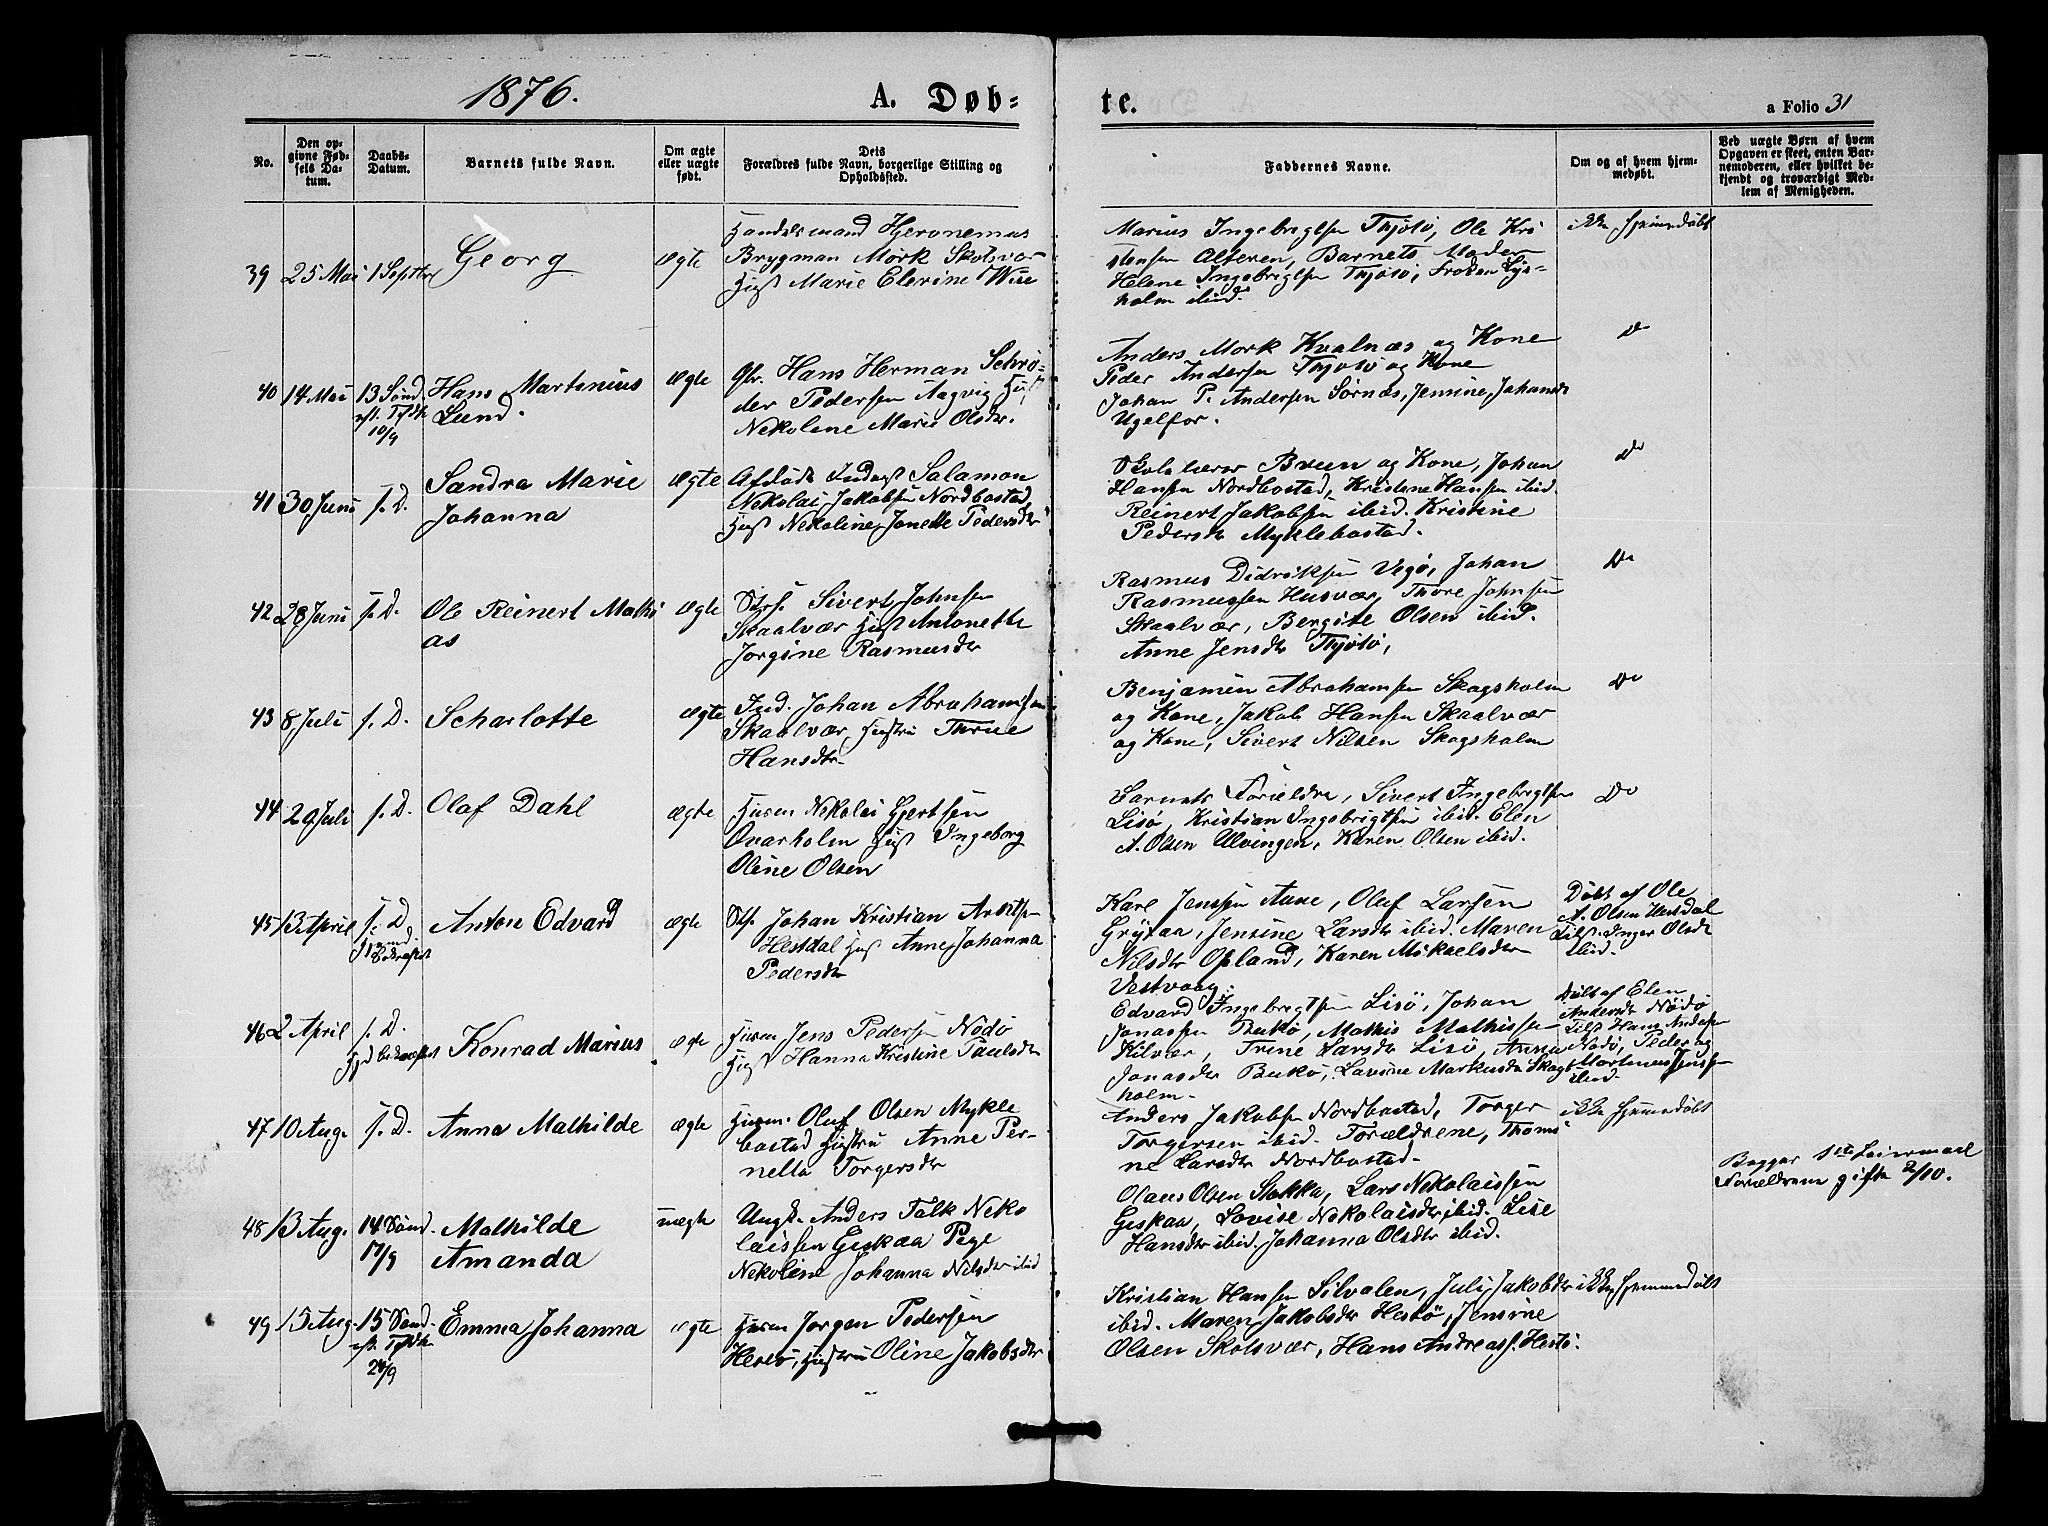 1876.
A. Døb-
te.
a Folio 31
No.
Den op-
givne Fød-
sels Da-
tum.
Daabs-
Datum.
Barnets fulde Navn.
Om ægte
eller uægte
født.
Dets
Forældres fulde Navn, borgerlige Stilling og
Opholdssted.
Faddernes Navne.
Om og af hvem hjem-
medøbt.
Ved uægte Børn af hvem
Opgaven er skeet, enten Bar-
nemoderen, eller hvilket be-
kjendt og troværdigt Med-
lem af Menigheden.
39 25 Mai 1 Septbr Georg ægte
Handelsmand Hjeronemus
Brygman Mörk Skotsvær
Hust Marie Elerine Wiie
Marius Ingebrigtsen Thjötö, Ole Kri
stensen Alteren, Barnets Moder
Helene Ingebrigtsen Thjötö, Frøken Lys-
holm ibid.
ikke hjemmedöbt
40 14 Mai 13 Sönd. Hans Martinius ægte
eft. Trfdh Lund.
10/9
Gbr. Hans Herman Schrö-
der Pedersen Aagvig Hust
Nekolene Marie Olsdtr.
Anders Mork Kvalnæs og Kone
Peder Andersen Thjötö og Kone
Johan P. Andersen Sörnæs, Jensine Johansdr
Ugelfor.
Do
41 30 Juni s. D. Sandra Marie ægte
Johanna
Afdöde Inderst Salamon
Nekolai Jakobsen Nordbostad
Hust Nekoline Jonette Pedersdtr
Skolelærer Bruun og Kone, Johan
Hansen Nordbostad, Kristene Hansen ibid.
Reinert Jakobsen ibid. Kristine
Pedersdtr Myklebostad.
Do
42 28 Juni s. D. Ole Reinert Mathi ægte
as
Strs. Sivert Johnsen
Skaalvær Hust Antonette
Jorgine Rasmusdtr
Rasmus Didriksen Vegö, Johan
Rasmussen Husvær, Thore Johnsen
Skaalvær, Bergite Olsen ibid.
Anne Jensdtr Thjötö,
Do
43 8 Juli s. D. Scharlotte ægte
Ind. Johan Abrahamsen
Skaalvær, Hustru Thrine
Hansdtr
Benjamin Abrahamsen Skogsholm
og Kone, Jakob Hansen Skaalvær
og Kone, Sivert Nilsen Skogsholm
Do
44 29 Juli s. D. Olaf Dahl ægte
Husm Nekolai Gjertsen
Qvarholm Hust Ingeborg
Oline Olsen
Barnets Forældre, Sivert Ingebrigtsen
Lisö, Kristian Ingebrigtsen ibid. Elen
A. Olsen Ulvingen, Karen Olsen ibid.
Do
45 13 April s. D. Anton Edvard ægte
Str. Johan Kristian Arntsen
Hestdal Hust Anne Johanna
Pedersdtr
Karl Jenssen Aune, Oluf Larsen
Grytaa, Jensine Larsdtr ibid. Maren
Nilsdtr Opland, Karen Mikaelsdtr
Vestvaag.
Döbt af Ole
A. Olsen Hestdal
Tilst. Inger Olsdt
ibid.
46 2 April s. D.
Hjd bekræftet Konrad Marius ægte
Husm Jens Pedersen Nödö
Hust Hanna Kristine Paulsdtr
Edvard Ingebregtsen Lisö, Johan
Jonassen Bukö, Mathis Mathissen
Kilvær, Trine Larsdtr Lisö, Anna
Jonasdtr Bukö, Lavine Markusdtr Skogs
holm.
Döbt af Elen
Andersdtr Nödö
Tilst Hans Andersen
Nodö, Peder og
Mortinus Jenssen
ibid.
47 10 Aug. s. D. Anna Mathilde ægte
Husm. Oluf Olsen Mykle
bostad Hustru Anne Per-
nella Torgersdtr
Anders Jakobsen Nordbostad, Torger
Torgersen ibid. Forældrene, Thomi
ne Larsdtr Nordbostad.
ikke hjemmedöbt
48 13 Aug. 14 Sönd. Mathilde uægte
17/9 Amanda
Ungk. Anders Falk Neko
laissen Giskaa Pige
Nekoline Johanna Nilsdtr ibid
Olaus Olsen Stokka, Lars Nekolaissen
Giskaa, Lovise Nekolaisdtr ibid. Lise
Hansdtr ibid. Johanna Olsdtr ibid.
Begges 1ste Leiermaal
Forældrene gifte 2/10.
49 15 Aug. 15 Sönd. Emma Johanna ægte
eft. Trfdh
24/9
Husm Jorgen Pedersen
Hestö, Hustru Oline Jakobsdtr
Kristian Hansen Silvalen, Juli Jakobsdtr
ibid. Maren Jakobsdtr Hestö, Jensine
Olsen Skotsvær, Hans Andreass. Hestö.
ikke hjemmedöbt